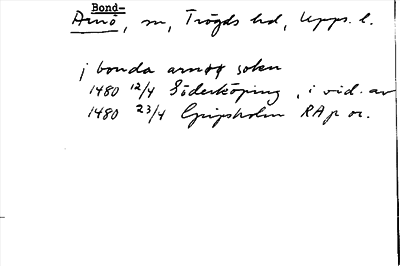 Bond-
Arnö, sn, Trögds hd, Upps. l.
j bonda arnøø sokn
1480 12/4 Söderköping, i vid. av
1480 23/4 Gripsholm RAp or.